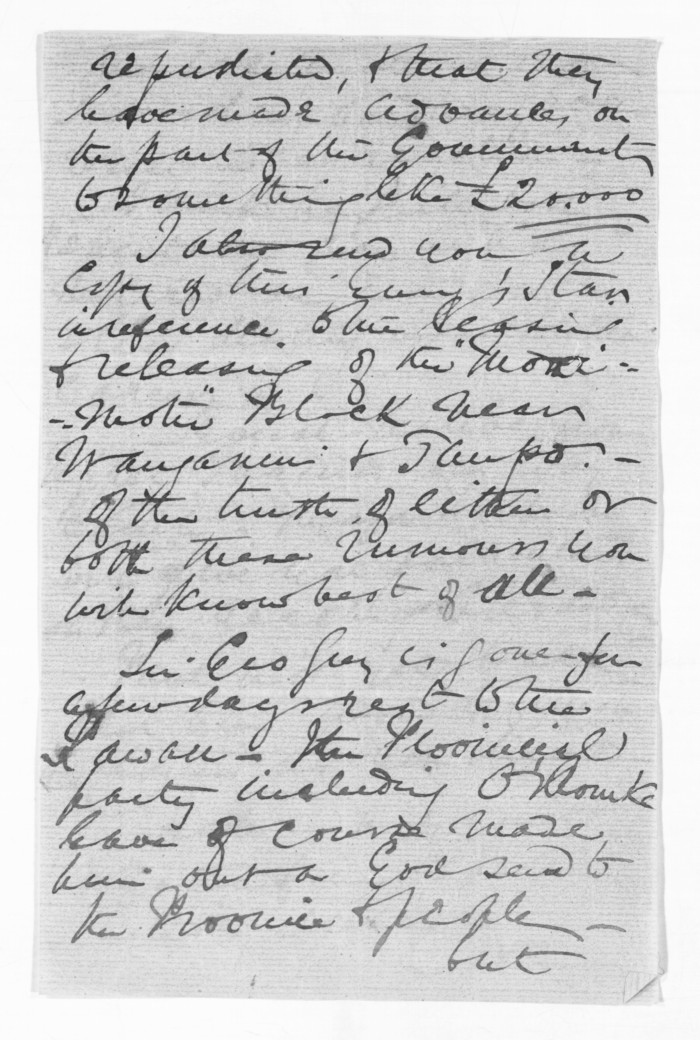 repudiated, & that they
have made advances on
the part of the Government
to something like £20,000
I also send you a
Copy of this Eveng's Star
in reference to the leasing
& releasing of the "
-motu" Block near
Wanganui & Taupo. -
of the truth of either or
both these rumours you
will know best of all -
Sir Geo Grey is gone for
a few days rest to the
Kawau - The Provincial
party including O'Rourke
have of course made
him out a God send to
the Province & people -
but